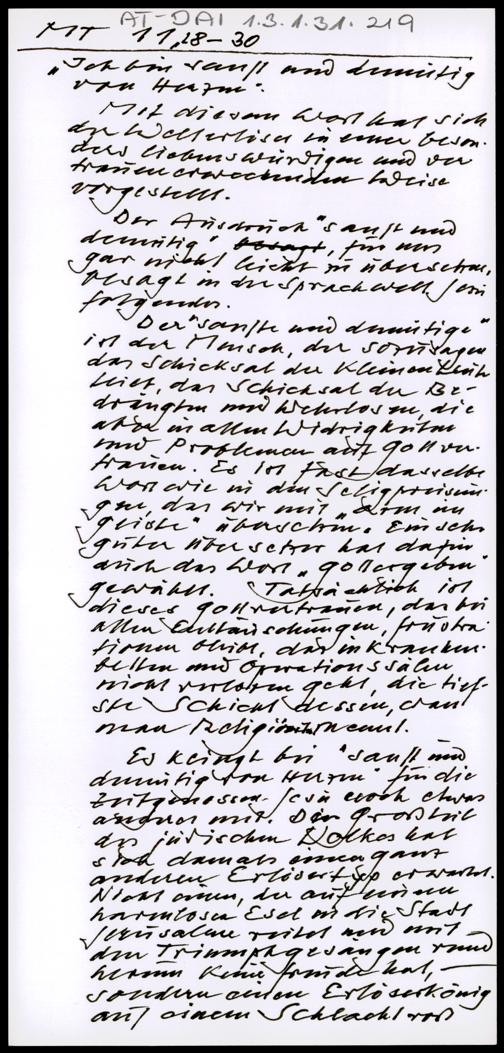 AT-DAI 1.3.1.31.219
MT 11,28-30
"Ich bin sanft und demütig
von Herzen".
Mit diesem Wort hat sich
der Welterlöser in einer beson-
ders liebenswürdigen und ver
trauenerweckenden Weise
vorgestellt.
Der Ausdruck "sanft und
demütig" besagt, für uns
gar nicht leicht zu übersetzen,
besagt in der Sprachwelt Jesu
folgendes.
Der "sanfte und demütige"
ist der Mensch, der sozusagen
das Schicksal der kleinen Leute
teilt, das Schicksal der Be-
drängten und Wehrlosen, die
aber in allen Widrigkeiten
und Problemen auf Gott ver-
trauen. Es ist fast dasselbe
Wort wie in den Seligpreisun-
gen, das wir mit "arm im
Geiste" übersetzen. Ein sehr
guter Übersetzer hat dafür
auch das Wort "gottergeben"
gewählt. Tatsächlich ist
dieses Gottvertrauen, das bei
allen Enttäuschungen, Frustra
tionen bleibt, das in Kranken-
betten und Operationssälen
nicht verloren geht, die tief-
ste Schicht dessen, was
man Religion nennt.
Es klingt bei "sanft und
demütig von Herzen" für die
Zeitgenossen Jesu noch etwas
anderes mit. Der Großteil
des jüdischen Volkes hat
sich damals einen ganz
anderen Erlösertyp erwartet.
Nicht einen, der auf einem
harmlosen Esel in die Stadt
Jerusalem reitet und mit
den Triumphgesängen rund
herum keine Freude hat, –
sondern einen Erlöserkönig
auf einem Schlachtroß